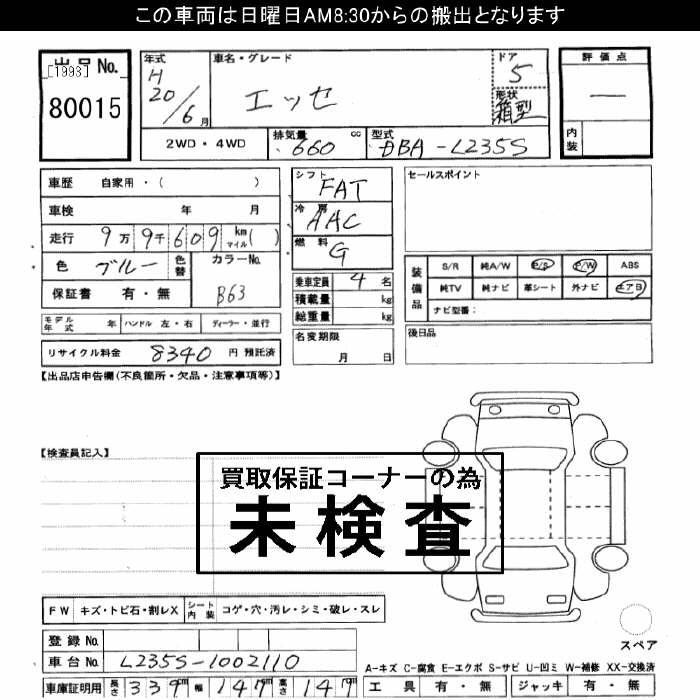 この車両は日曜日AM8:30からの搬出となります
出品No.
[1993]
80015
年式
H
20/6月
車名・グレード
エッセ
ドア
5
形状
箱型
評価点
―
内装
2WD・4WD
排気量
660 cc
型式
DBA-L235S
車歴 自家用・( )
車検 年 月
走行 9万9千609 km マイル ( )
色 ブルー 色替
カラーNo.
B63
保証書 有・無
シフト
FAT
冷房
AAC
燃料
G
乗車定員 4名
積載量 kg
総重量 kg
名変期限
月 日
セールスポイント
装備品
S/R 純A/W P/S P/W ABS
純TV 純ナビ 革シート 外ナビ エアB
ナビ型番:
後日品
モデル年式 年 ハンドル 左・右 ディーラー・並行
リサイクル料金 8340 円 預託済
【出品店申告欄(不良箇所・欠品・注意事項等)】
【検査員記入】
買取保証コーナーの為
未検査
FW キズ・トビ石・割レX シート内装 コゲ・穴・汚レ・シミ・破レ・スレ
登録No.
車台No. L235S-1002110
車庫証明用 長さ 339cm 幅 147cm 高さ 147cm
スペア
A-キズ C-腐食 E-エクボ S-サビ U-凹ミ W-補修 XX-交換済
工具 有・無 ジャッキ 有・無